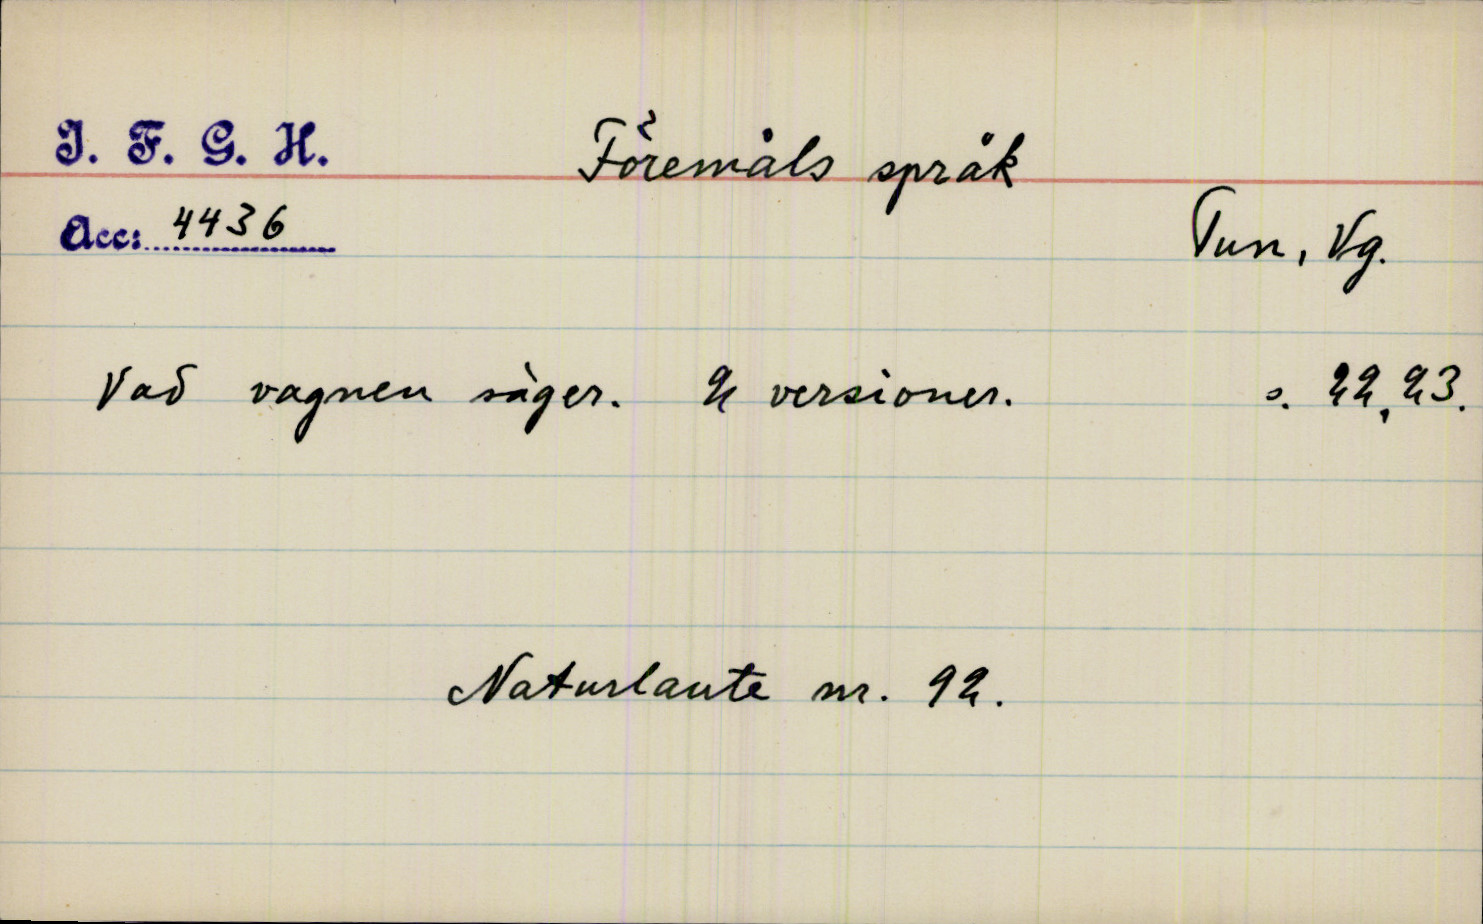 I. F. G. H.
Föremåls språk
Acc: 4436
Tun, Vg.
Vad vagnen säger. 2 versioner. s. 22, 23.
Naturlaute nr. 92.